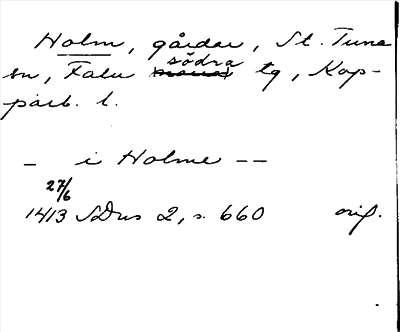 Holm, gårdar, St. Tuna
sn, Falu södra tg, Kop-
parb. l.
— i Holme — —
27/6
1413 SDns 2, s. 660 orig.